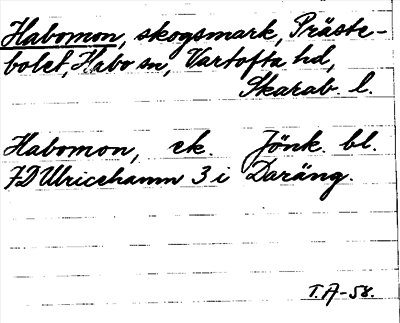 Habomon, skogsmark, Präste-
bolet, Habo sn, Vartofta hd,
Skarab. l.
Habomon, ek. Jönk. bl.
7D Ulricehamn 3 i Daräng.
T.A-58.